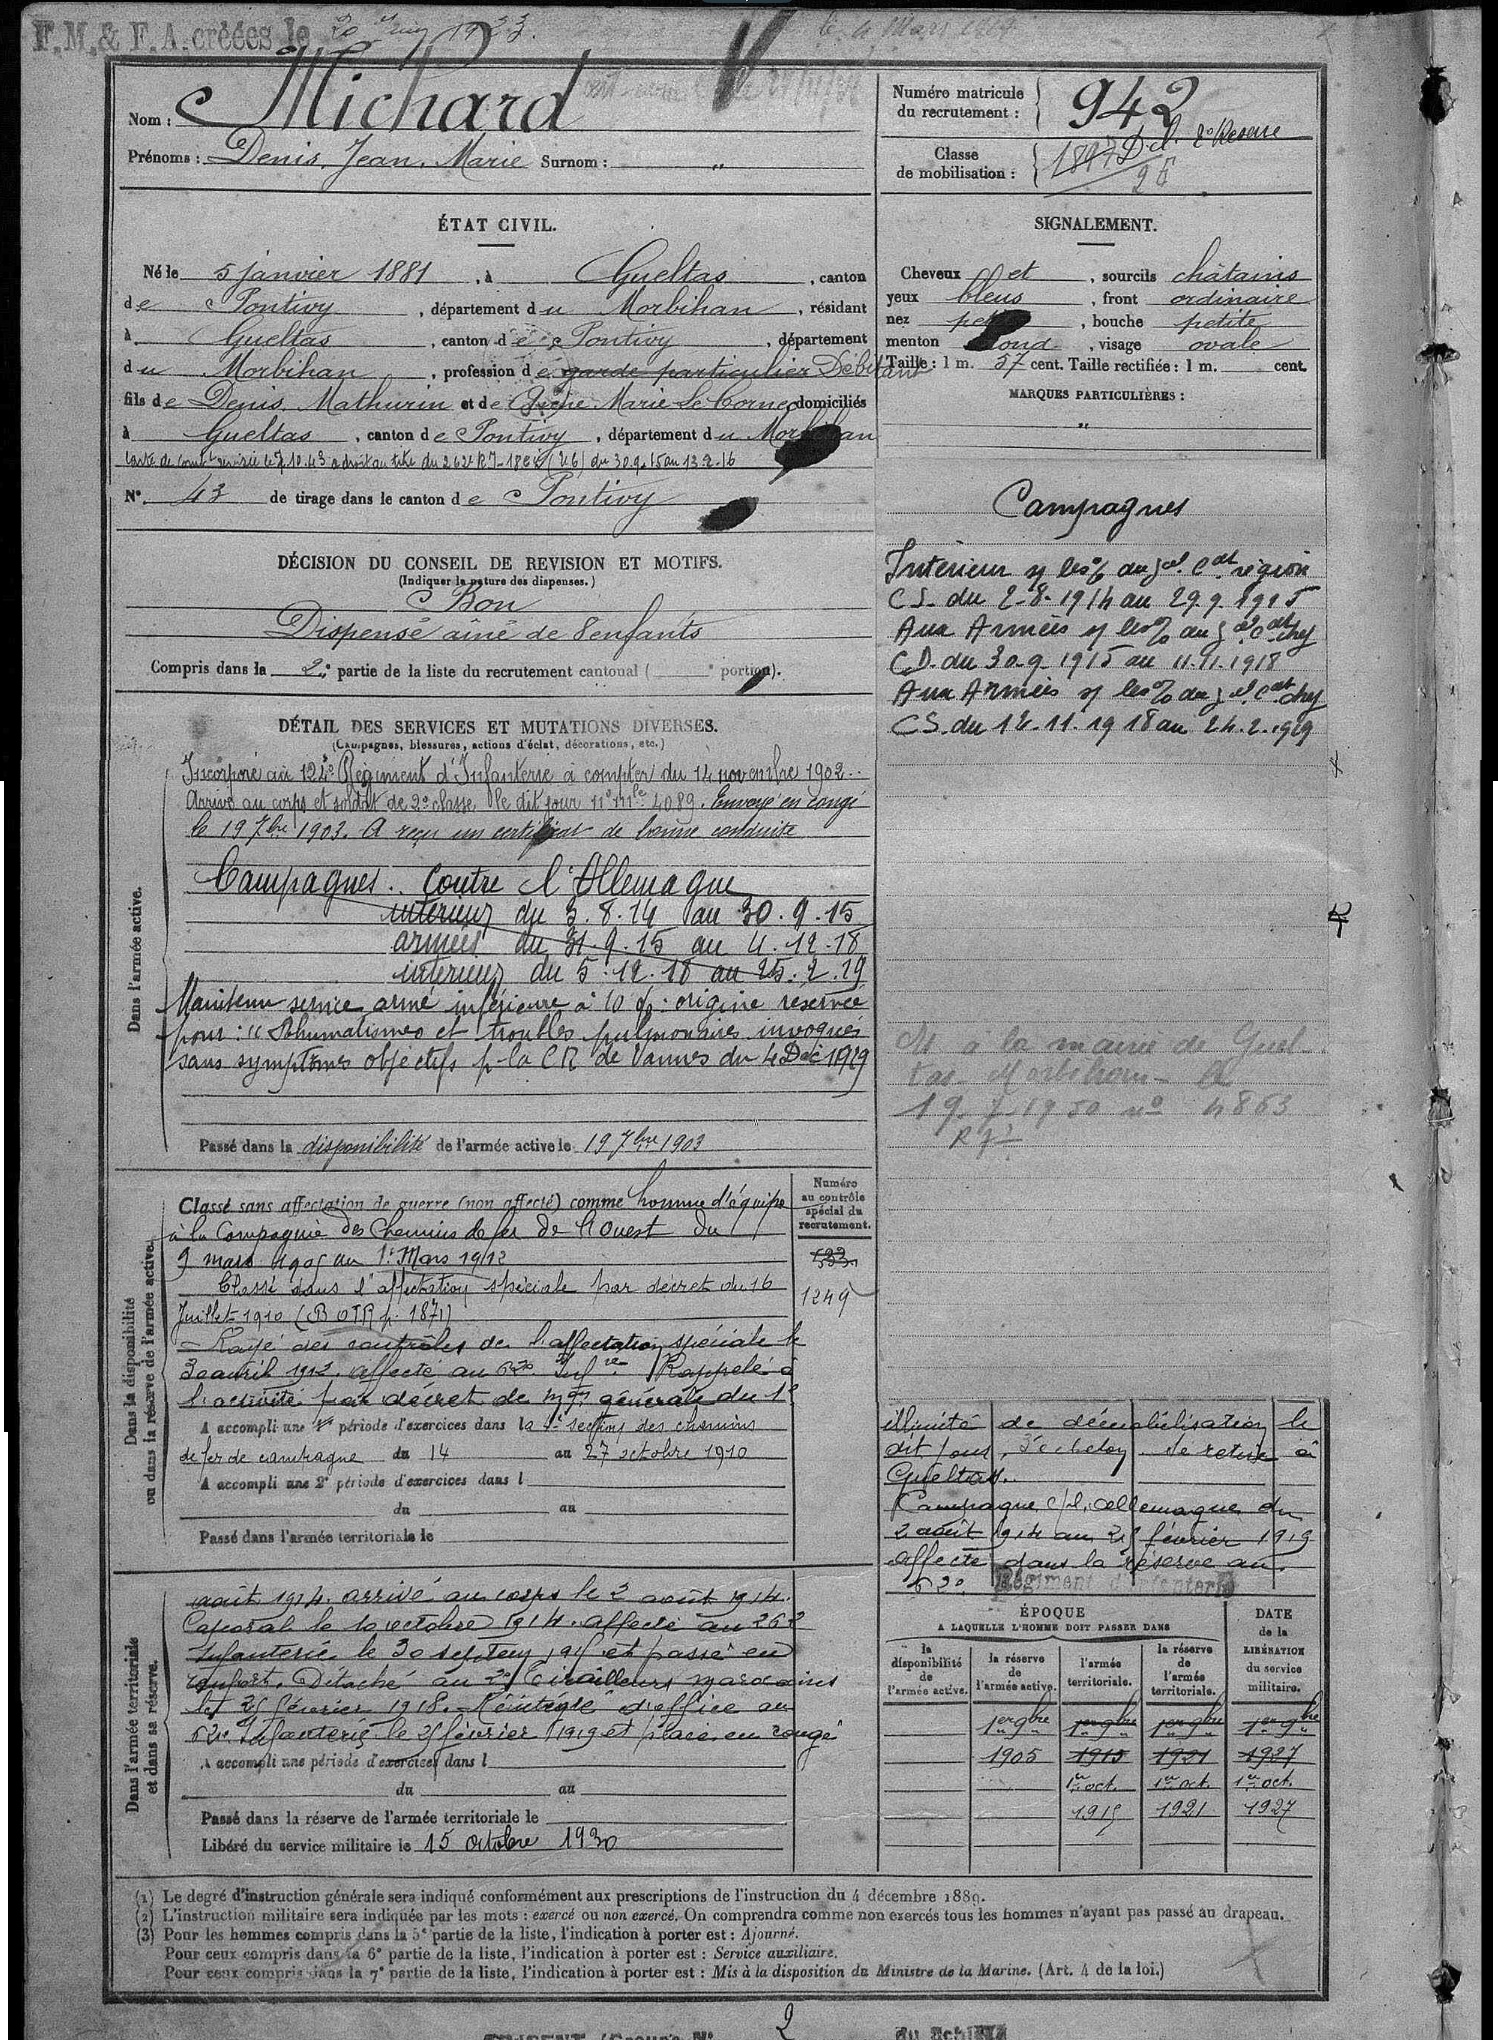 F.M. & F.A. créées le 20 Juin 1933.
le 4 Mars 1929
Nom : Michard
Prénoms : Denis, Jean, Marie Surnom : "
Numéro matricule du recrutement : 942
Classe de mobilisation : 1897 Dél. 2e Réserve
26
ÉTAT CIVIL.
Né le 5 janvier 1881, à Gueltas, canton
de Pontivy, département du Morbihan, résidant
à Gueltas, canton de Pontivy, département
du Morbihan, profession de garde particulier Débitant
fils de Denis Mathurin et de Marie Le Corner domiciliés
à Gueltas, canton de Pontivy, département du Morbihan
Carte de combt le 7.10.43 a droit au titre du 262e RI - 18e (26) du 30.9.15 au 13.2.16
N° 43 de tirage dans le canton de Pontivy
SIGNALEMENT.
Cheveux et, sourcils châtains
yeux bleus, front ordinaire
nez petit, bouche petite
menton rond, visage ovale
Taille : 1 m. 57 cent. Taille rectifiée : 1 m. cent.
MARQUES PARTICULIÈRES :
"
DÉCISION DU CONSEIL DE REVISION ET MOTIFS.
(Indiquer la nature des dispenses.)
Bon
Dispensé aîné de 8 enfants
Compris dans la 2e partie de la liste du recrutement cantonal ( e portion).
Campagnes
Intérieur région
CS. du 2-8-1914 au 29.9.1915
Aux Armées
CD. du 30-9-1915 au 11.11.1918
Aux Armées
CS. du 12.11.1918 au 24.2.1919
DÉTAIL DES SERVICES ET MUTATIONS DIVERSES.
(Campagnes, blessures, actions d'éclat, décorations, etc.)
Dans l'armée active.
Incorporé au 124e Régiment d'Infanterie à compter du 14 novembre 1902.
Arrivé au corps et soldat de 2e classe le dit jour n° mle 4089. Envoyé en congé
le 19 7bre 1903. A reçu un certificat de bonne conduite
Campagnes.. Contre l'Allemagne
intérieur du 3.8.14 au 30.9.15
armées du 31.9.15 au 4.12.18
intérieur du 5.12.18 au 25.2.19
Maintenu service armé inférieure à 10 % : origine réservée
pour : "Rhumatismes et troubles pulmonaires invoqués
sans symptômes objectifs p. la CR de Vannes du 4 Déc 1929
Passé dans la disponibilité de l'armée active le 19 7bre 1903
M à la mairie de Guel-
tas Morbihan
19-7-1950 n° 4863
Dans la disponibilité ou dans la réserve de l'armée active.
Numéro au contrôle spécial du recrutement.
533
1249
Classé sans affectation de guerre (non affecté) comme homme d'équipe
à la Compagnie des Chemins de fer de l'Ouest du
9 mars 1905 au 1er Mars 1912
Classé dans l'affectation spéciale par décret du 16
Juillet 1910 (BOPR p. 1871)
Rayé des contrôles de l'affectation spéciale le
30 avril 1912. affecté au 62e Infie Rappelé à
l'activité par décret de mon générale du 1er
A accompli une 1re période d'exercices dans la 4e section des chemins
de fer de campagne du 14 au 27 octobre 1910
A accompli une 2e période d'exercices dans l
du au
Passé dans l'armée territoriale le
Dans l'armée territoriale et dans sa réserve.
août 1914. arrivé au corps le 3 août 1914.
Caporal le 10 octobre 1914. affecté au 262
Infanterie le 30 septem 1915 et passé en
renfort. Détaché au 2e Tirailleurs marocains
le 25 février 1918. Réintégré d'office au
62e Infanterie le 25 février 1919 et placé en congé
A accompli une période d'exercices dans l
du au
Passé dans la réserve de l'armée territoriale le
Libéré du service militaire le 15 Octobre 1930
illimité de démobilisation le
dit jour, 3e echelon. Se retire à
Gueltas.
Campagne c/ l'Allemagne du
2 août 1914 au 25 février 1919
Affecté dans la réserve au
62e Régiment d'Infanterie
ÉPOQUE
A LAQUELLE L'HOMME DOIT PASSER DANS
DATE de la LIBÉRATION du service militaire.
la disponibilité de l'armée active.
la réserve de l'armée active.
l'armée territoriale.
la réserve de l'armée territoriale.
1er 9bre 1er 9bre 1er 9bre 1er 9bre
1905 1915 1921 1927
1er oct. 1er oct. 1er oct.
1915 1921 1927
(1) Le degré d'instruction générale sera indiqué conformément aux prescriptions de l'instruction du 4 décembre 1889.
(2) L'instruction militaire sera indiquée par les mots : exercé ou non exercé. On comprendra comme non exercés tous les hommes n'ayant pas passé au drapeau.
(3) Pour les hommes compris dans la 5e partie de la liste, l'indication à porter est : Ajourné.
Pour ceux compris dans la 6e partie de la liste, l'indication à porter est : Service auxiliaire.
Pour ceux compris dans la 7e partie de la liste, l'indication à porter est : Mis à la disposition du Ministre de la Marine. (Art. 4 de la loi.)
2